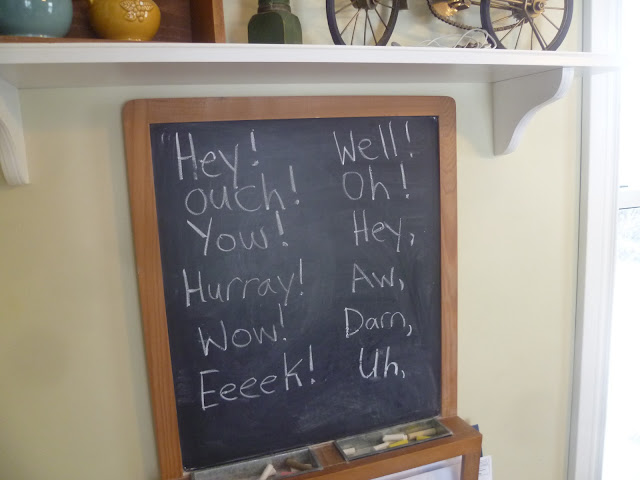 Hey!
ouch!
Yow!
Hurray!
Wow!
Eeeek!
Well!
Oh!
Hey,
Aw,
Darn,
Uh,